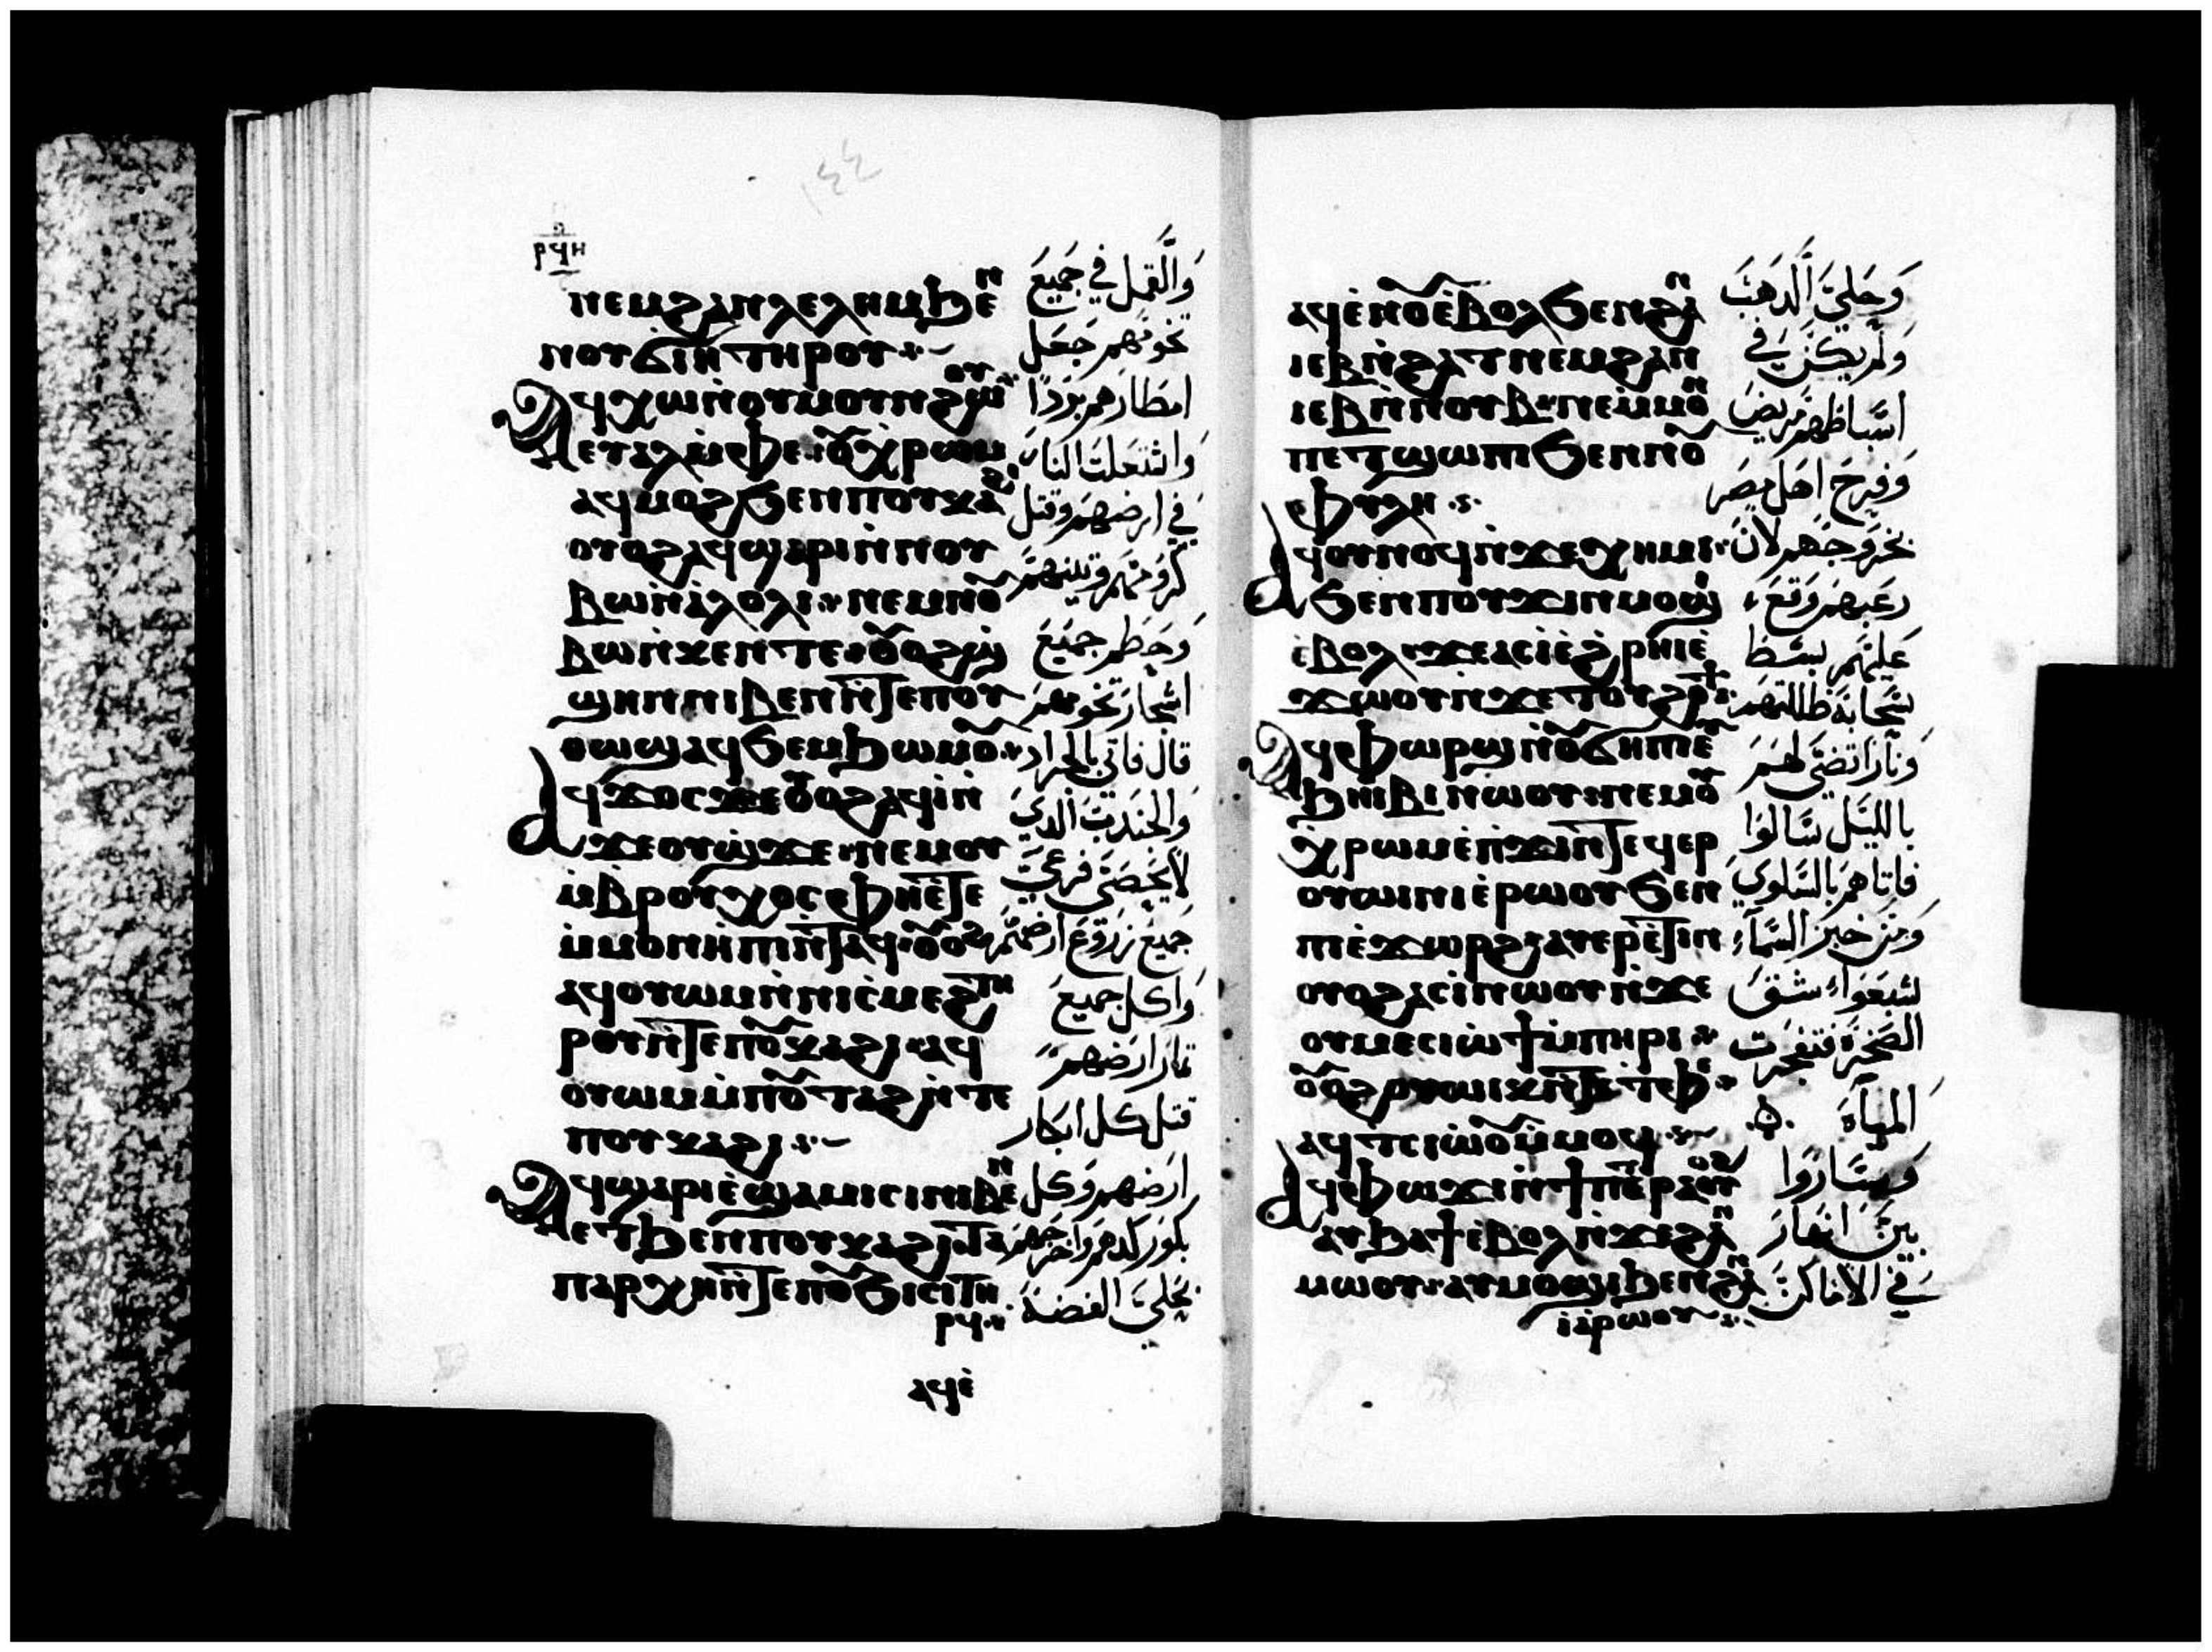 ⲣϥⲏ
ⲛⲉⲙϩⲁⲛⲗⲉⲗⲏⲙϧⲉⲛ
ⲛⲟⲩϭⲓⲏ ⲧⲏⲣⲟⲩ
ⲁϥⲭⲱⲛ̇ⲟⲩⲙⲟⲩⲛϩⲱⲟⲩ
ⲉⲧⲁⲗⲙ̇ⲫⲉ ⲟⲩⲭⲣⲱⲙ
ⲁϥⲙⲟϩϧⲉⲛⲡⲟⲩⲕⲁϩⲓ
ⲟⲩⲟϩⲁϥϣⲁⲣⲓⲛ̇ⲛⲟⲩ
ⲃⲱⲛ̇ⲁⲗⲟⲗⲓ ⲛⲉⲙⲛⲟⲩ
ⲃⲱⲛ̇ⲕⲉⲛ̇ⲧⲉ ⲟⲩⲟϩ
ϣⲏⲛⲛⲓⲃⲉⲛⲛ̇ⲧⲉⲡⲟⲩ
ⲑⲱϣⲁϥϧⲉⲙϧⲱⲙⲟⲩ
ⲁϥϫⲟⲥϫⲉⲟⲩⲟϩⲁϥⲓ̇ⲛ̇
ϫⲉⲟⲩϣϫⲉ ⲛⲉⲙⲟⲩ
ⲙ̇ⲃⲣⲟⲩⲭⲟⲥⲫⲏⲉ̇ⲧⲉ
ⲙ̇ⲙⲟⲛⲏⲡⲓⲛ̇ⲧⲁϥ ⲟⲩⲟϩ
ⲁϥⲟⲩⲱⲙⲛ̇ⲛⲓⲥⲓⲙⲉϩ ⲧⲏ
ⲣⲟⲩⲛ̇ⲧⲉⲡⲟⲩⲕⲁϩⲓ ⲁϥ
ⲟⲩⲱⲙⲙ̇ⲡⲟⲩⲧⲁϩⲛ̇ⲧⲉ
ⲡⲟⲩⲕⲁϩⲓ
ⲁϥϣⲁⲣⲓⲉ̇ϣⲁⲙⲓⲥⲓⲛⲓⲃⲉⲛ
ⲉⲧϧⲉⲛⲡⲟⲩⲕⲁϩⲓ ⲧⲁ
ⲡⲁⲣⲭⲏⲛ̇ⲧⲉⲡⲟⲩϧⲓⲥⲓⲧⲏ
ⲣⲟⲩ
ⲁϥⲉ̇
والقمل في جميع
تخومهم جعل
امطارهم بردا
واشتعلت النار
في ارضهم وقتل
كرومهم وتينهم
وحطم جميع
اشجار تخومهم
قال فاتي بالجراد
والجندب الدي
لا يحصى فرعي
جميع زروع ارضهم
واكل جميع
ثمار ارضهم
قتل كل ابكار
ارضهم وكل
بكور كدهم واخرجهم
بحلي الفضة
ⲁϥⲉ̇ⲛⲟⲩⲉ̇ⲃⲟⲗϧⲉⲛϩⲁⲛ
ⲓⲉⲃⲛ̇ϩⲁⲧ ⲛⲉⲙϩⲁⲛ
ⲓⲉⲃⲛ̇ⲛⲟⲩⲃ ⲛⲉⲙ̇ⲙⲟⲛ
ⲡⲉⲧϣⲱⲛⲓϧⲉⲛⲛⲟⲩ
ⲫⲩⲗⲏ
ⲁϥⲟⲩⲛⲟϥⲛ̇ϫⲉⲭⲏⲙⲓ
ϧⲉⲛⲡⲟⲩϫⲓⲛⲙⲟϣⲓ
ⲉ̇ⲃⲟⲗ ϫⲉⲁⲥⲓ̇ⲉ̇ϩⲣⲏⲓⲉ̇
ϫⲱⲟⲩⲛ̇ϫⲉⲧⲟⲩϩⲟϯ
ⲁϥⲫⲱⲣϣⲛ̇ⲟⲩϭⲏⲡⲓⲉ̇
ϧⲏⲓⲃⲓⲛⲱⲟⲩ ⲛⲉⲙⲟⲩ
ⲭⲣⲱⲙⲉ̇ⲡϫⲓⲛⲧⲉϥⲉⲣ
ⲟⲩⲱⲓⲛⲓⲉ̇ⲣⲱⲟⲩϧⲉⲛ
ⲡⲓⲉ̇ϫⲱⲣϩ ⲁⲩⲉⲣⲉ̇ⲧⲓⲛ
ⲟⲩⲟϩⲁⲥⲓ̇ⲛⲱⲟⲩⲛ̇ϫⲉ
ⲟⲩⲙⲉⲥⲓⲱ̇ϯⲙ̇ⲡⲏⲣⲓ
ⲟⲩⲟϩⲟⲩⲱⲓⲕⲛ̇ⲧⲉⲧⲫⲉ
ⲁϥⲧⲥⲓⲱⲟⲩⲙ̇ⲙⲟϥ
ⲁϥⲫⲱϫⲓⲛϯⲡⲉⲧⲣⲁⲟⲩⲟϩ
ⲁⲩϧⲁϯⲉ̇ⲃⲟⲗⲛ̇ϫⲉϩⲁⲛ
ⲙⲱⲟⲩ ⲁⲩⲙⲟϣⲓϧⲉⲛϩⲁⲛ
ⲓⲁⲣⲱⲟⲩ
وحلي الدهب
ولم يكن في
اسباطهم مريض
وفرح اهل مصر
بخروجهم لان
رعبهم وقع
عليهم بسط
سحابة ظللتهم
ونارا تضي لهم
بالليل سالوا
فاتاهم بالسلوي
ومن خبز السماء
اشبعوا شق
الصخرة فتفجرت
المياه
وساروا
بين انهار
في الاماكن